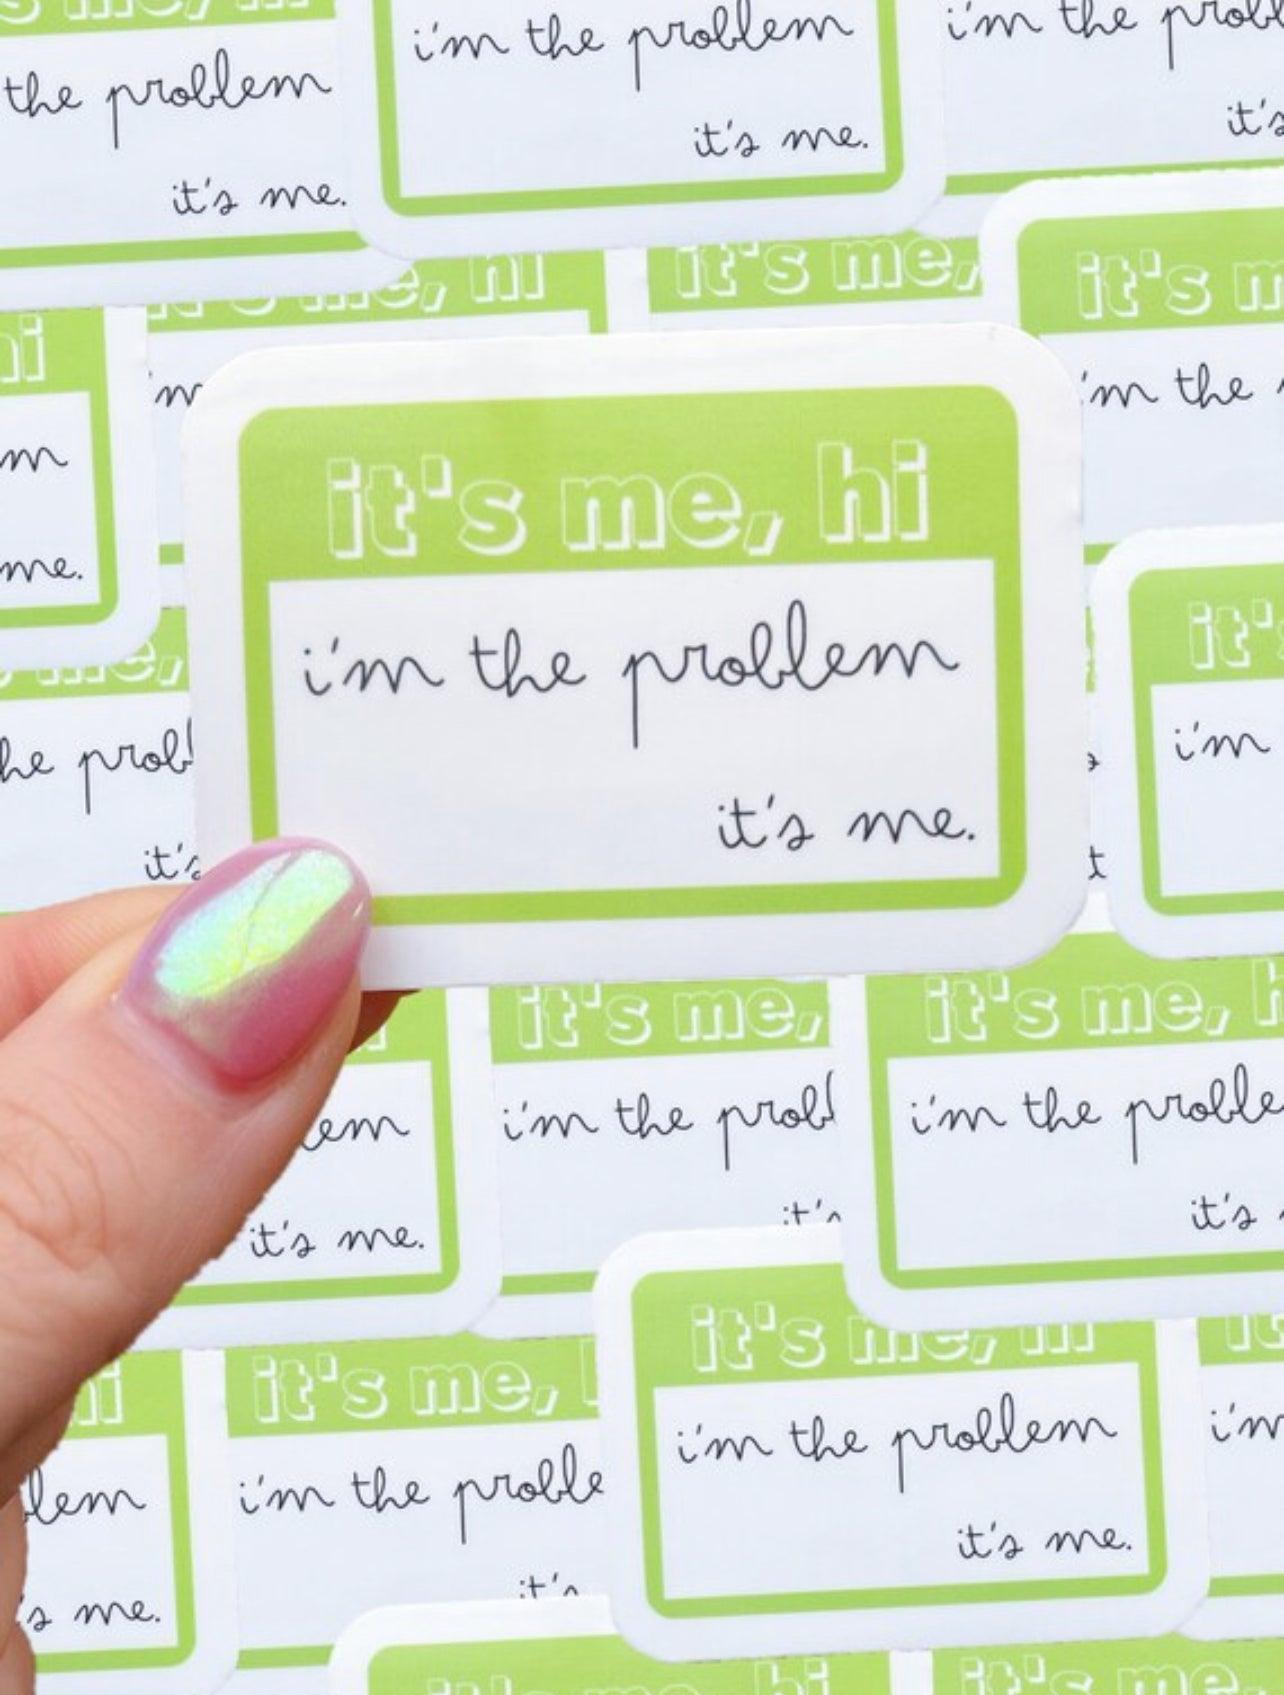 s me, hi
the problem
it's me.
i'm the problem
it's me.
i'm the probl
it's
it's me, hi
it's me,
it's m
'm the
hi
m
me.
it's me, hi
i'm the problem
it's me.
me,
he probl
it's
it's
i'm
it's me,
i'm the probl
it's
it's me, h
i'm the proble
it's
lem
it's me.
hi
lem
's me.
it's me,
i'm the proble
it's
it's me, hi
i'm the problem
it's me.
it
i'm
it's me, hi
it's me,